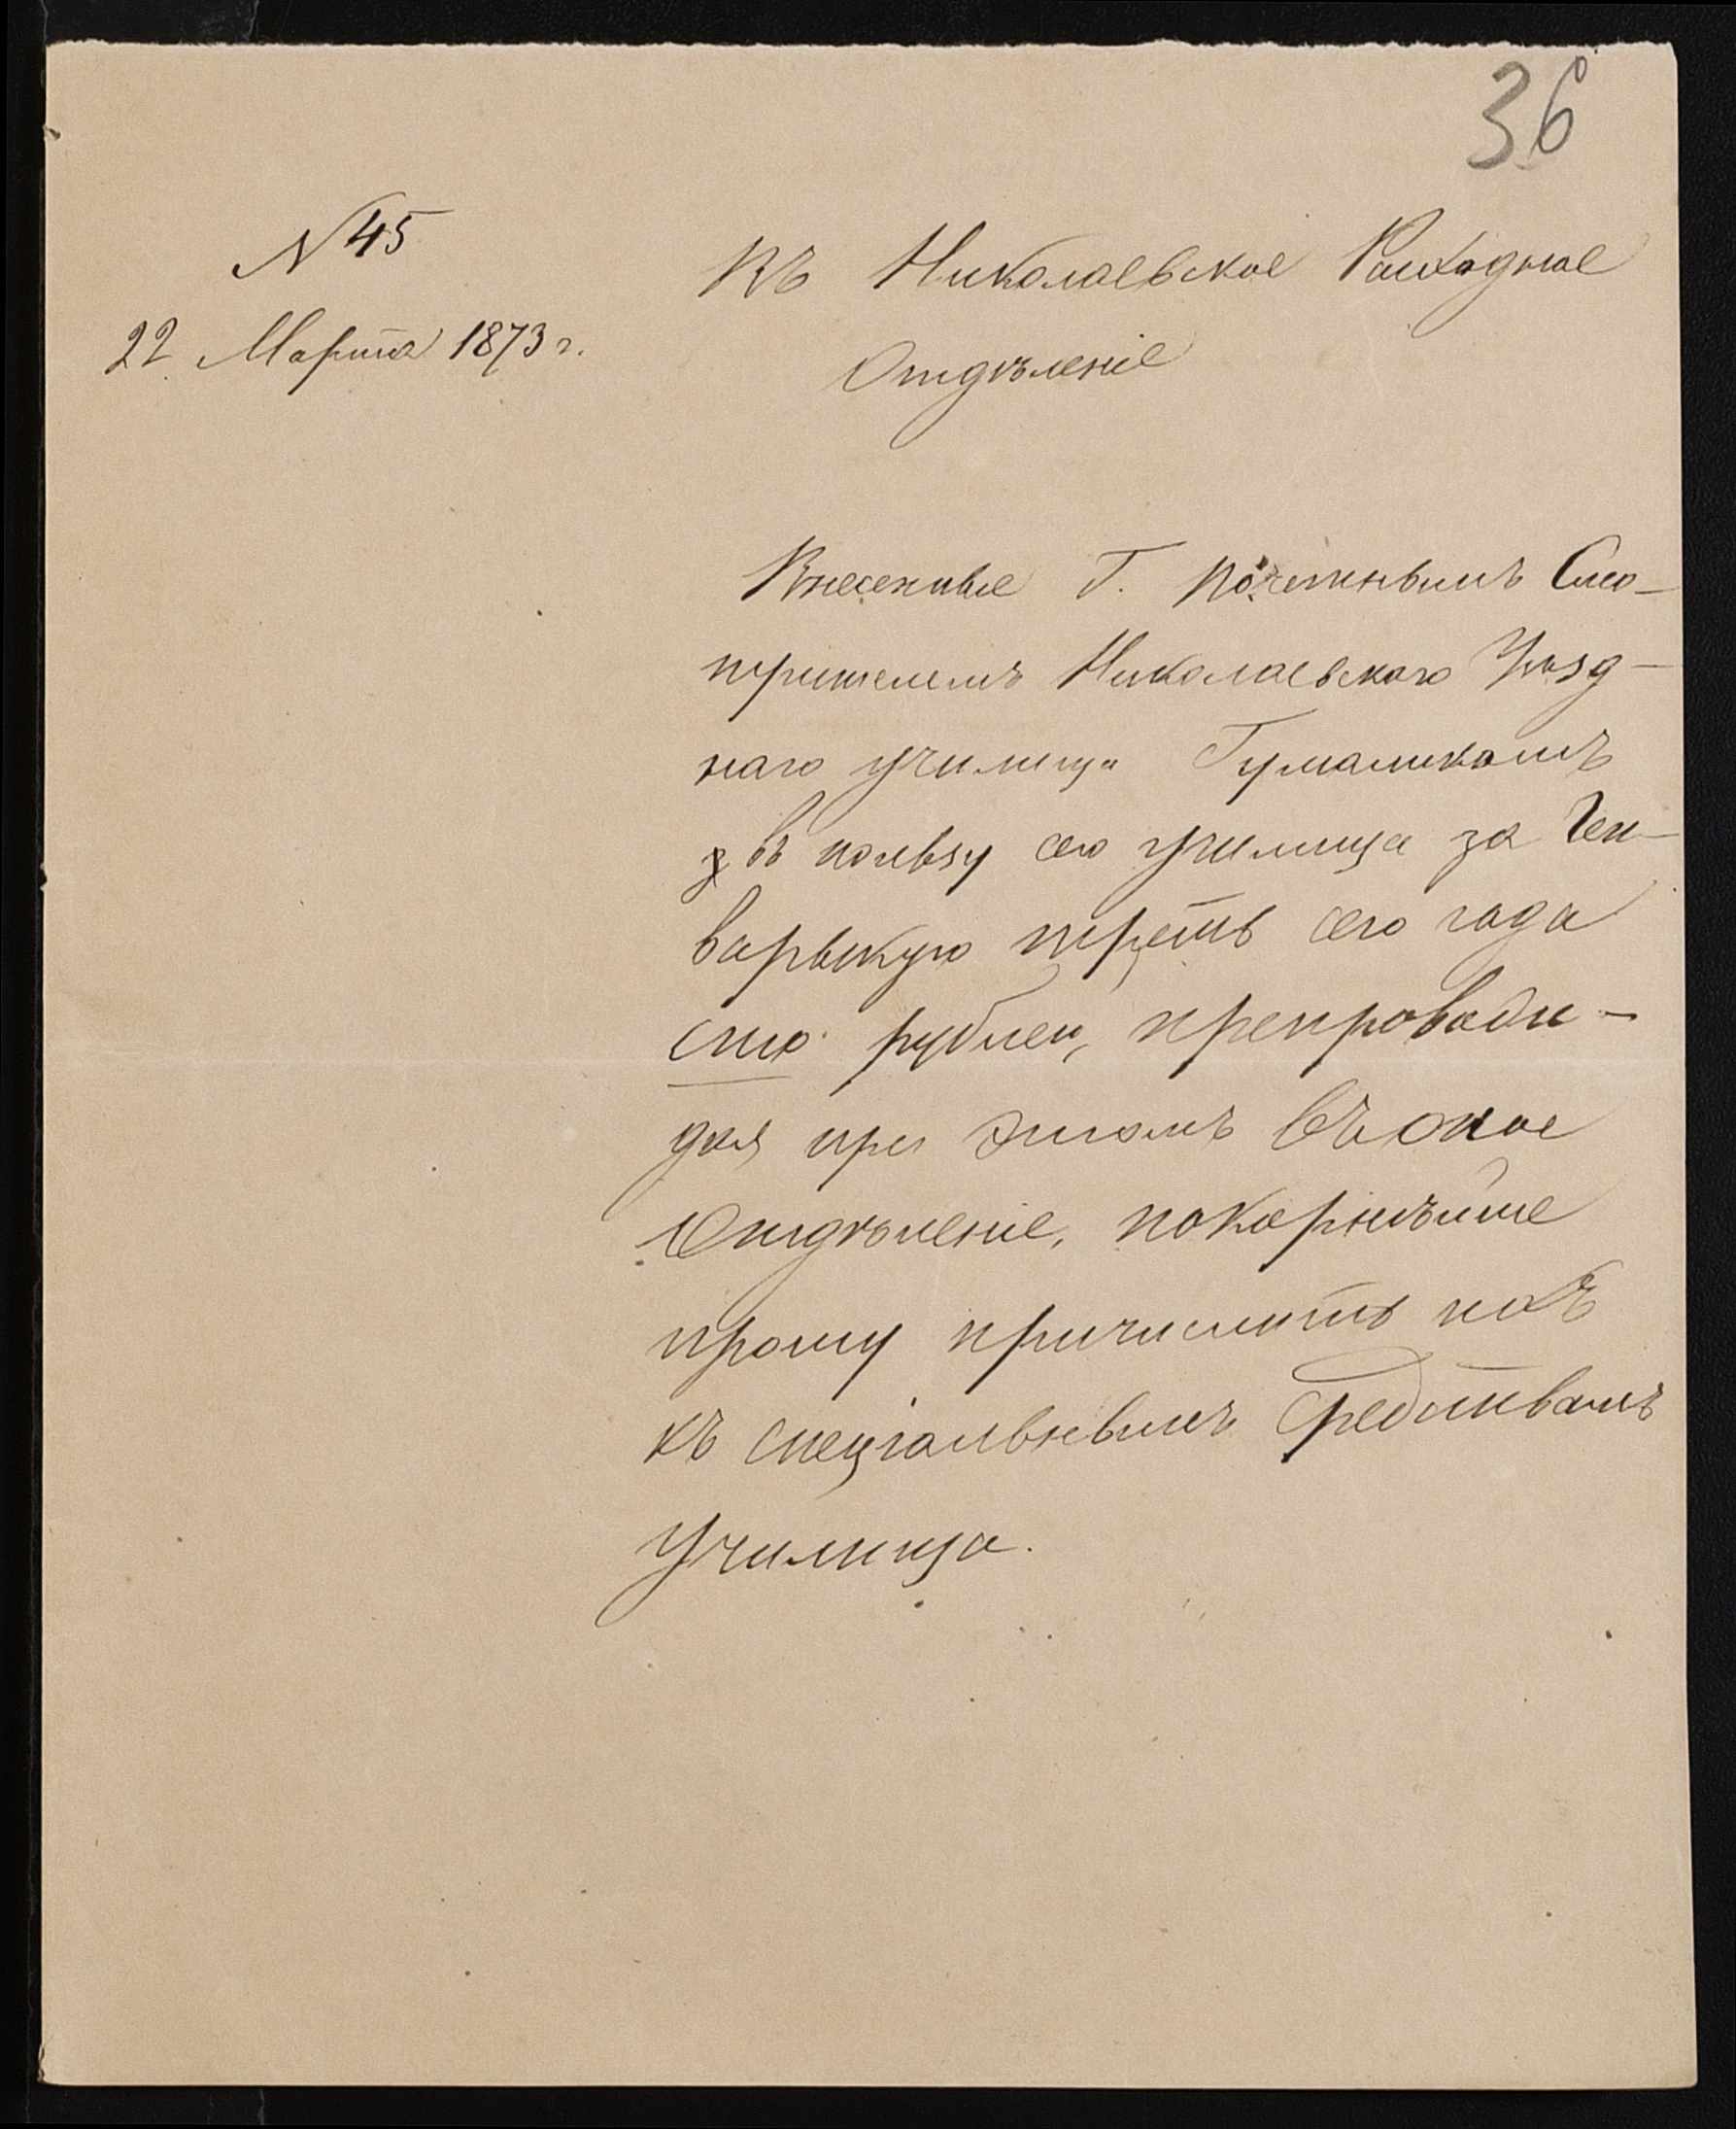 36
N 45
22 Марта 1873 г.
Въ Николаевское Расходное
Отдѣленіе
Внесенные Г. почетнымъ Смо-
трителемъ Николаевскаго Уѣзд-
наго училища
въ пользу сего училища за Ген-
варьскую треть сего года
сто рублей, препровож-
дая при этомъ въ оное
Отдѣленіе, покорнѣйше
прошу причислить ихъ
къ спеціальнымъ средствамъ
училища.